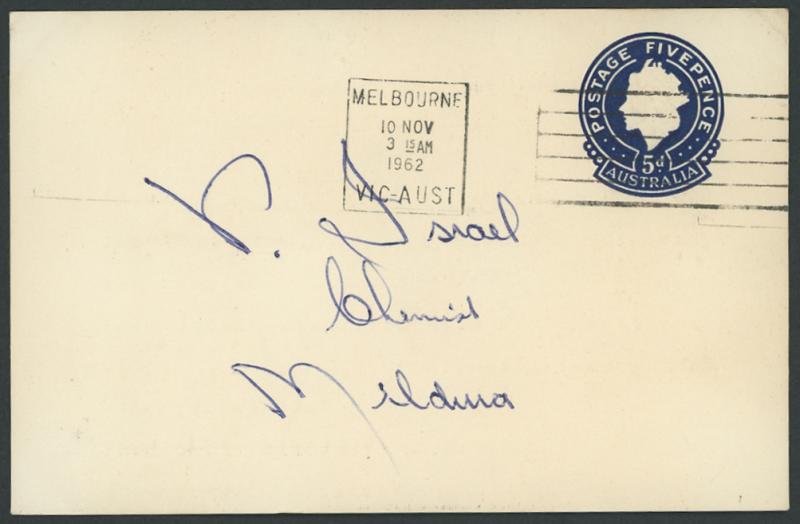 POSTAGE FIVEPENCE
5d
AUSTRALIA
MELBOURNE
10 NOV
3 15 AM
1962
VIC-AUST
V. Israel
Chemist
Mildura